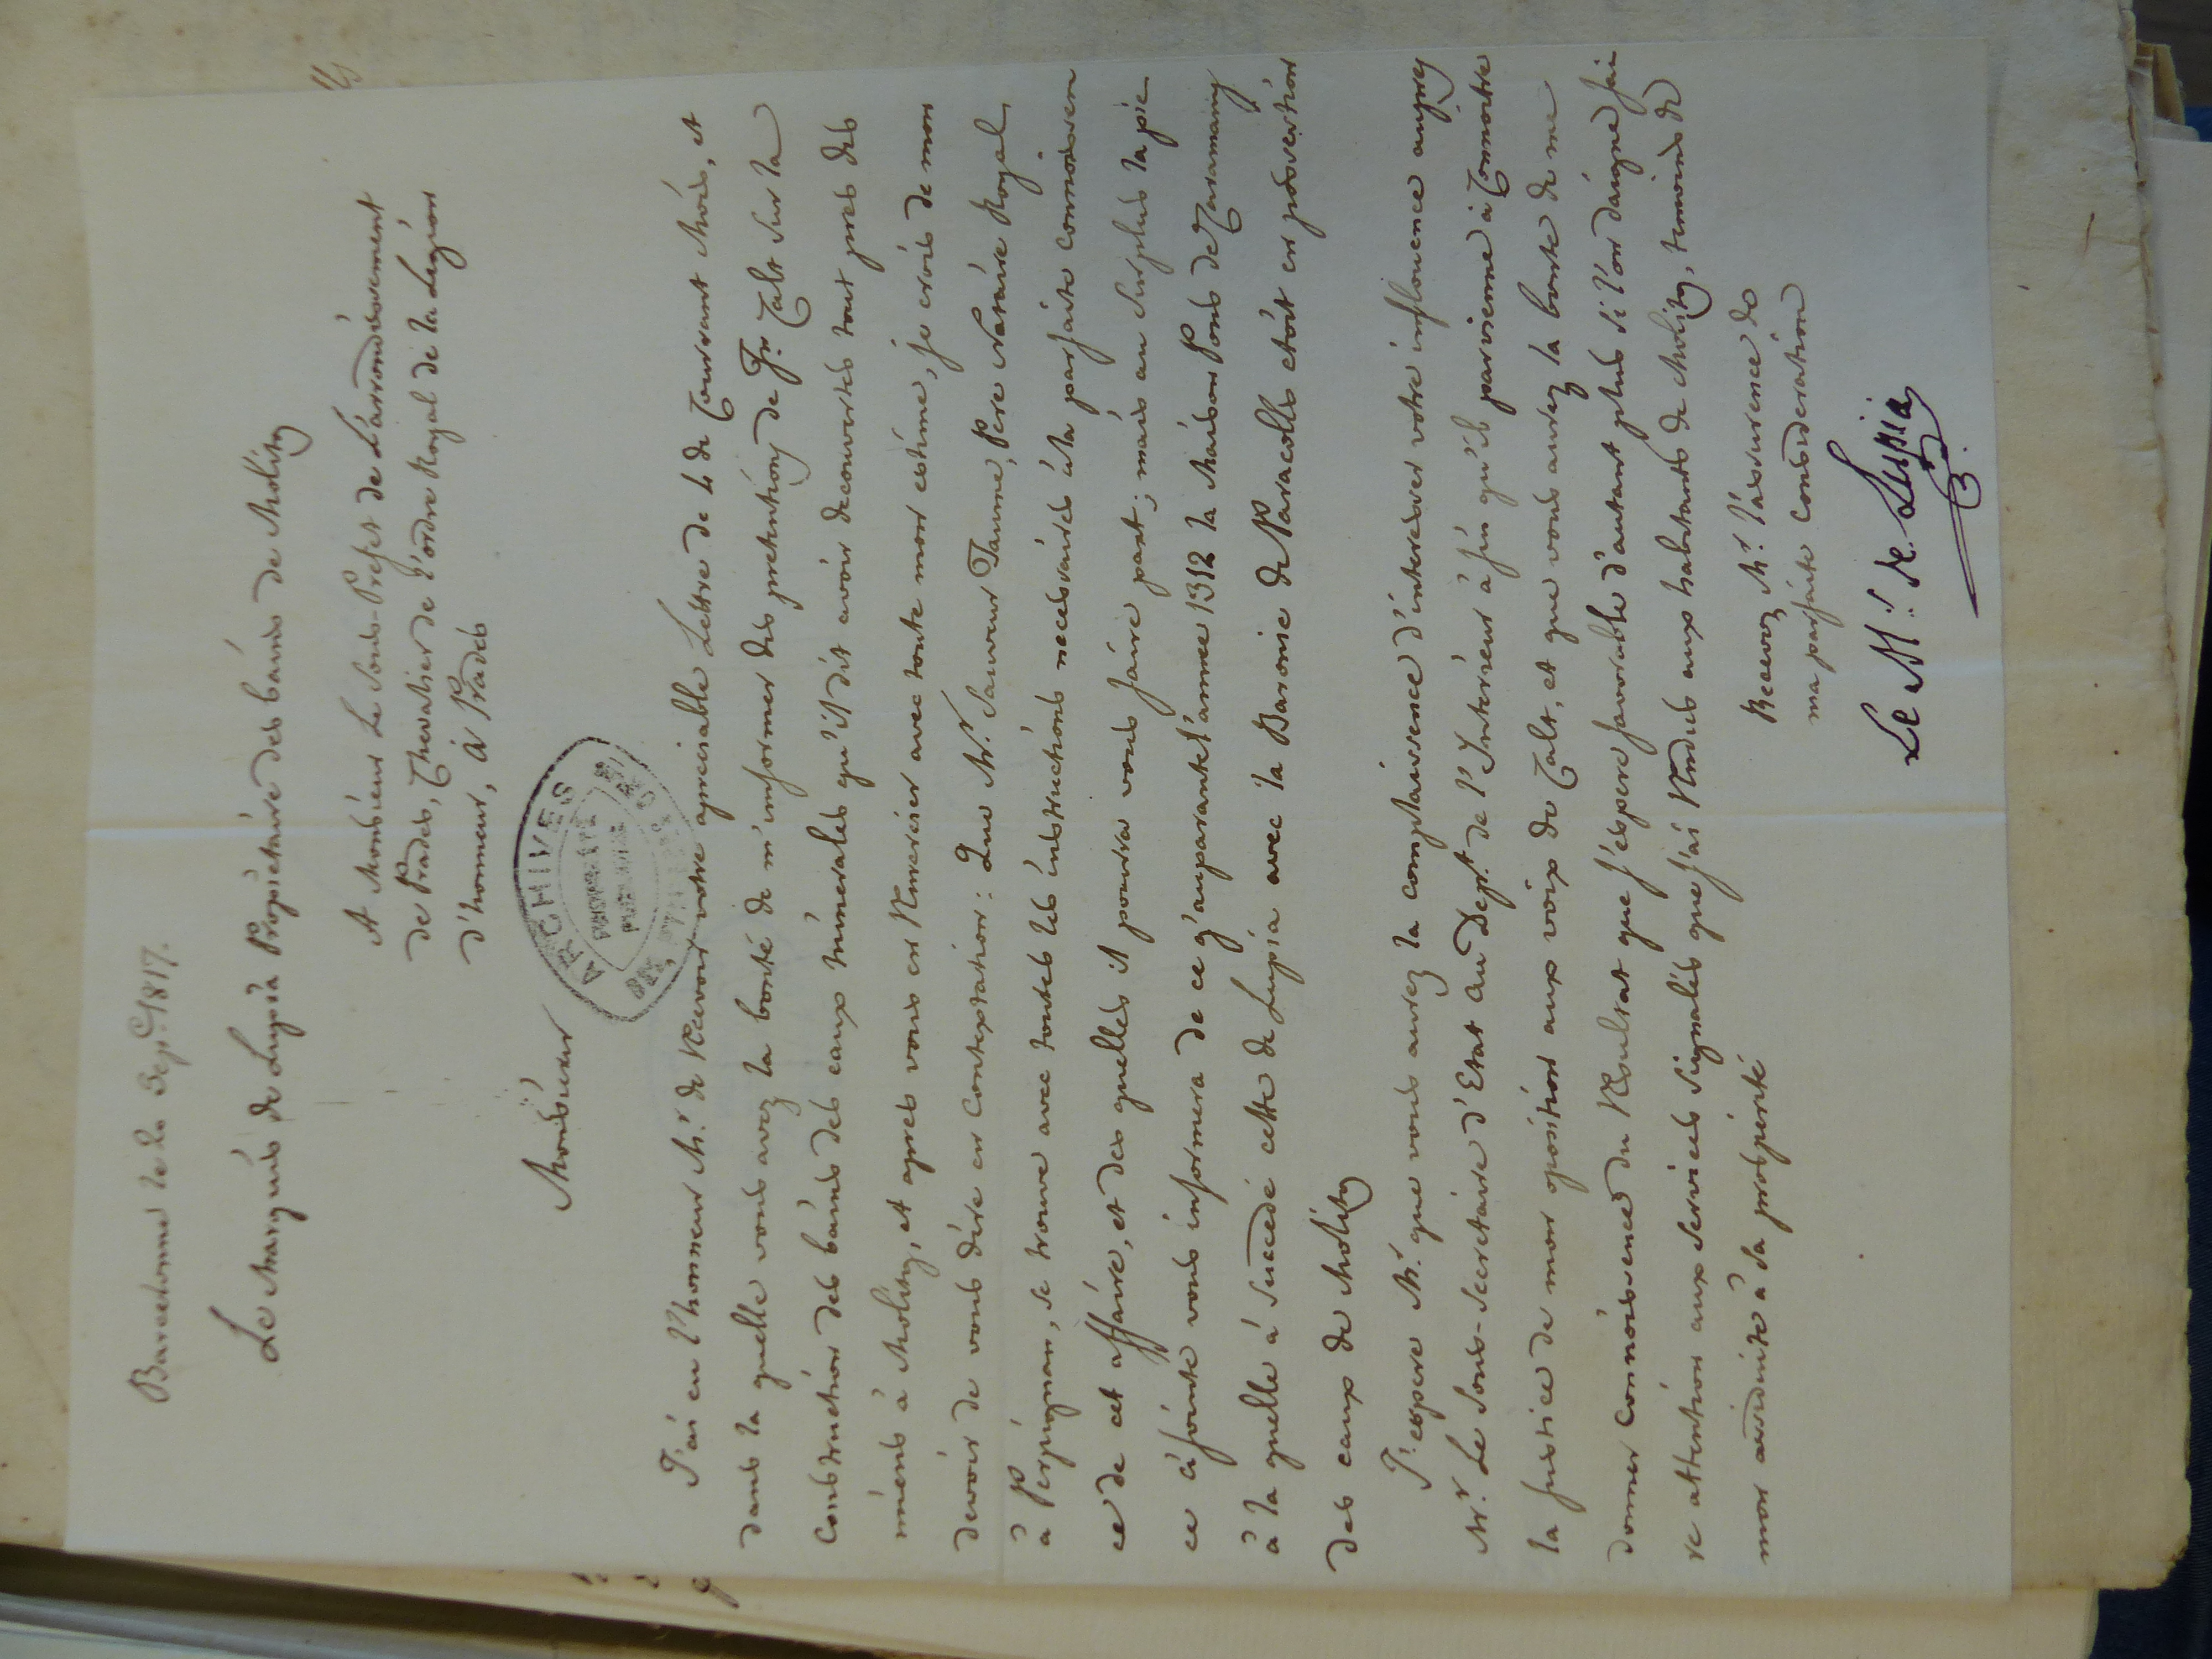 Barcelonne le 20 Sep.e 1817.
Le Marquis de Lupia Propiétaire des bains de Molitg
A Monsieur Le Sous-Prefet de L'arrondissement
de Prades, Chevalier de l'ordre Royal de la Legion
d'honneur, à Prades
Monsieur
ARCHIVES
PROPRIÉTÉ
PUBLIQUE
J'ai eu l'honneur Mr. de Recevoir votre apreciable Lettre de 4 de Courrant Mois, et
dans la quelle vous avez la bonté de m'informer des pretentions de Fr. Calt sur la
Construction des bains des eaux minerales qu'il dit avoir decouvertes tout pres des
miens à Molitg, et apres vous en Remercier avec toute mon estime, je crois de mon
devoir de vous dire en Contextation: Que Mr. Sauveur Jaume, Pere Notaire Royal
à Perpignan, se trouve avec toutes les instructions necessaires à la parfaite connoissen
ce de cet affaire, et des quelles il pourra vous faire part; mais au surplus la pie-
ce ci jointe vous informera de ce q'auparavant l'année 1312 la Maison Pons de Caramany
à la quelle à succedé cette de Lupia avec la Baronie de Paracolls etoit en possertion
des eaux de Molitg
J'espere Mr. que vous aurez la complaissence d'interesser votre inflouence aupres
Mr. Le Sous-Secretaire d'Etat au Dept. de l'Interieur à fin qu'il parvienne à Connoitre
la justice de mon oposition aux voix de Calt, et que vous aurez la bonté de me
donner Connoissence du Resultat que j'espere favorable d'autant plus si l'on daigne fai
re attention aux services signalés que j'ai Rendus aux habitants de Molitg, temoins de
mon assiduité à sa prosperité
Recevez Mr. l'assurence de
ma parfaite Consideration
Le M.is de Lupia